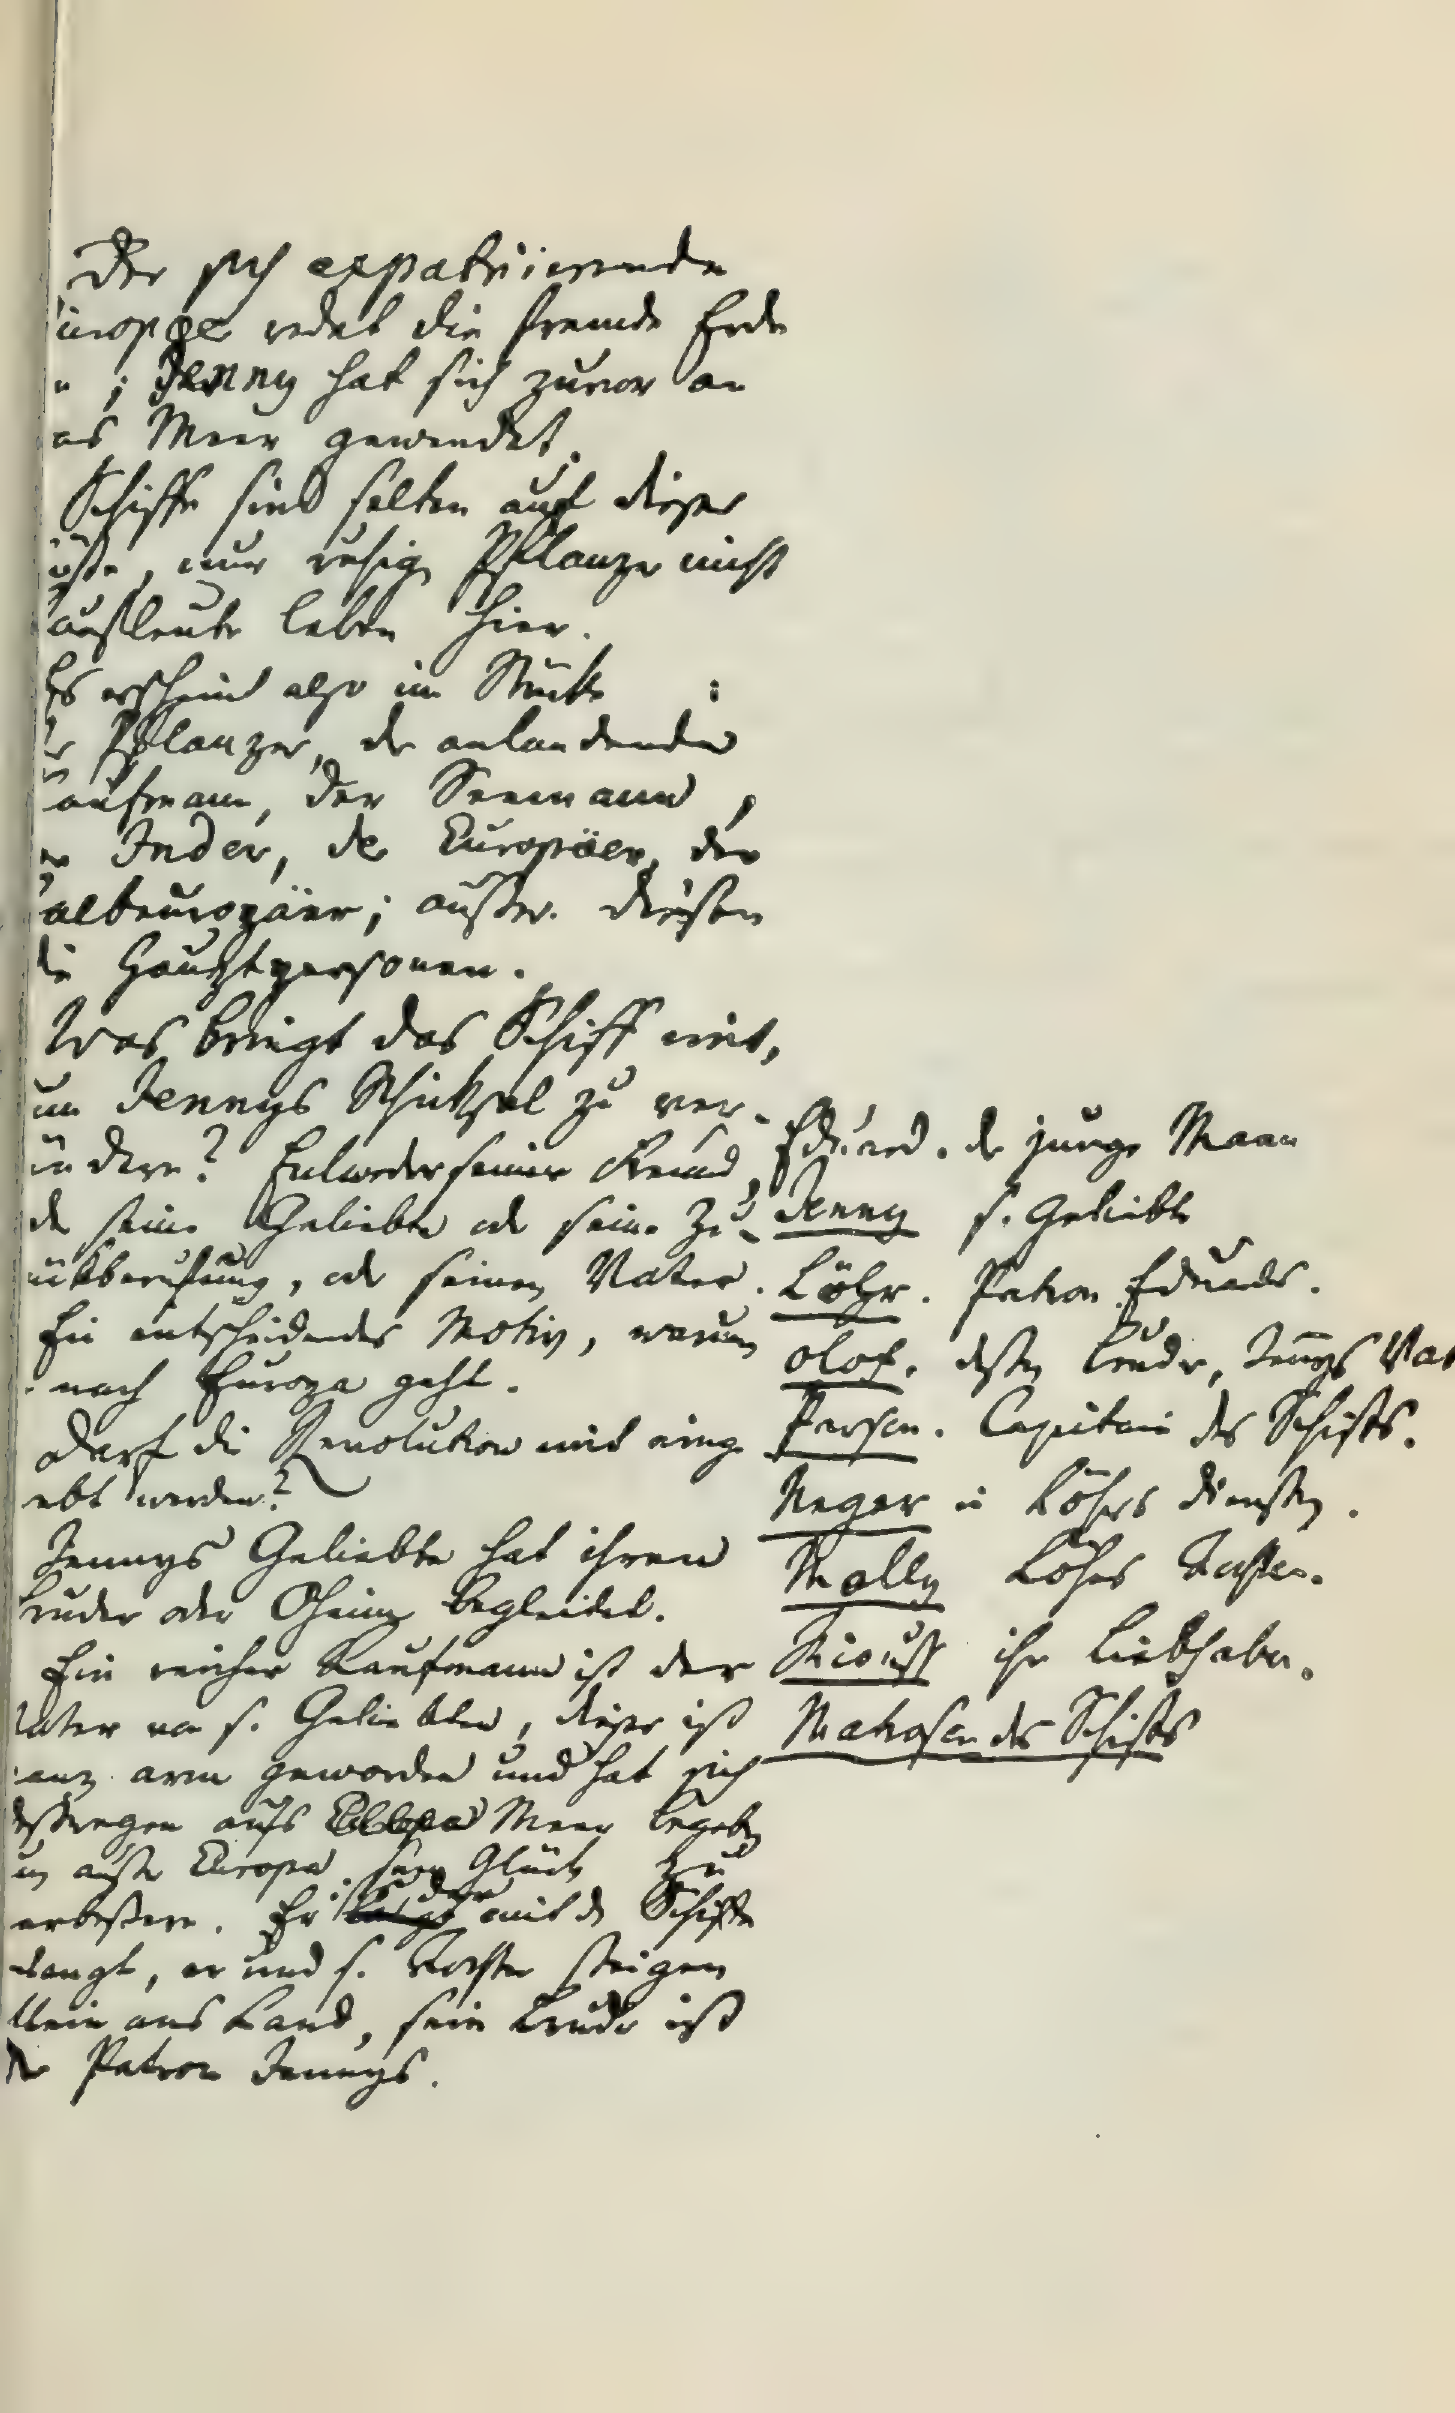 Der sich expatriierende
uropaer redet die fremde Erde
n; Jenny hat sich zuvor an
as Meer gewendet.
Schiffe sind selten auf dieser
üste, nur ruhige Pflanzer nicht
aufleute leben hier.
Es erscheint also im Stücke :
r Pflanzer, der anlandende
aufmann, der Seemann,
er Inder, der Europäer, der
albeuropäer; außer diesen
die Hauptpersonen.
Was bringt das Schiff mit,
um Jennys Schicksal zu ver-
ändern? Entweder seinen Freund,
oder seine Geliebte oder seine Zu-
ückberufung, oder seinen Vater.
Ein entscheidendes Motiv, warum
nach Europa geht.
Darf die Revolution mit einge
ebt werden?
Jennys Geliebte hat ihren
Bruder oder Oheim begleitet.
Ein reicher Kaufmann ist der
Vater von s. Geliebten, dieser ist
ganz arm geworden und hat sich
deßwegen aufs Meer begeben
um außer Europa sein Glück zu
erbeßern. Er ist der mit dem Schiffe
langt, er und s. Tochter steigen
llein ans Land, sein Bruder ist
der Patron Jennys.
Eduard. der junge Mann
Jenny s. Geliebte
Löhr. Patron Eduards.
Olof. deßen Bruder, Jennys Vat
Person. Capitain des Schiffs.
Neger in Löhrs Diensten.
Molly Löhrs Tochter.
ihr Liebhaber.
Matrosen des Schiffs